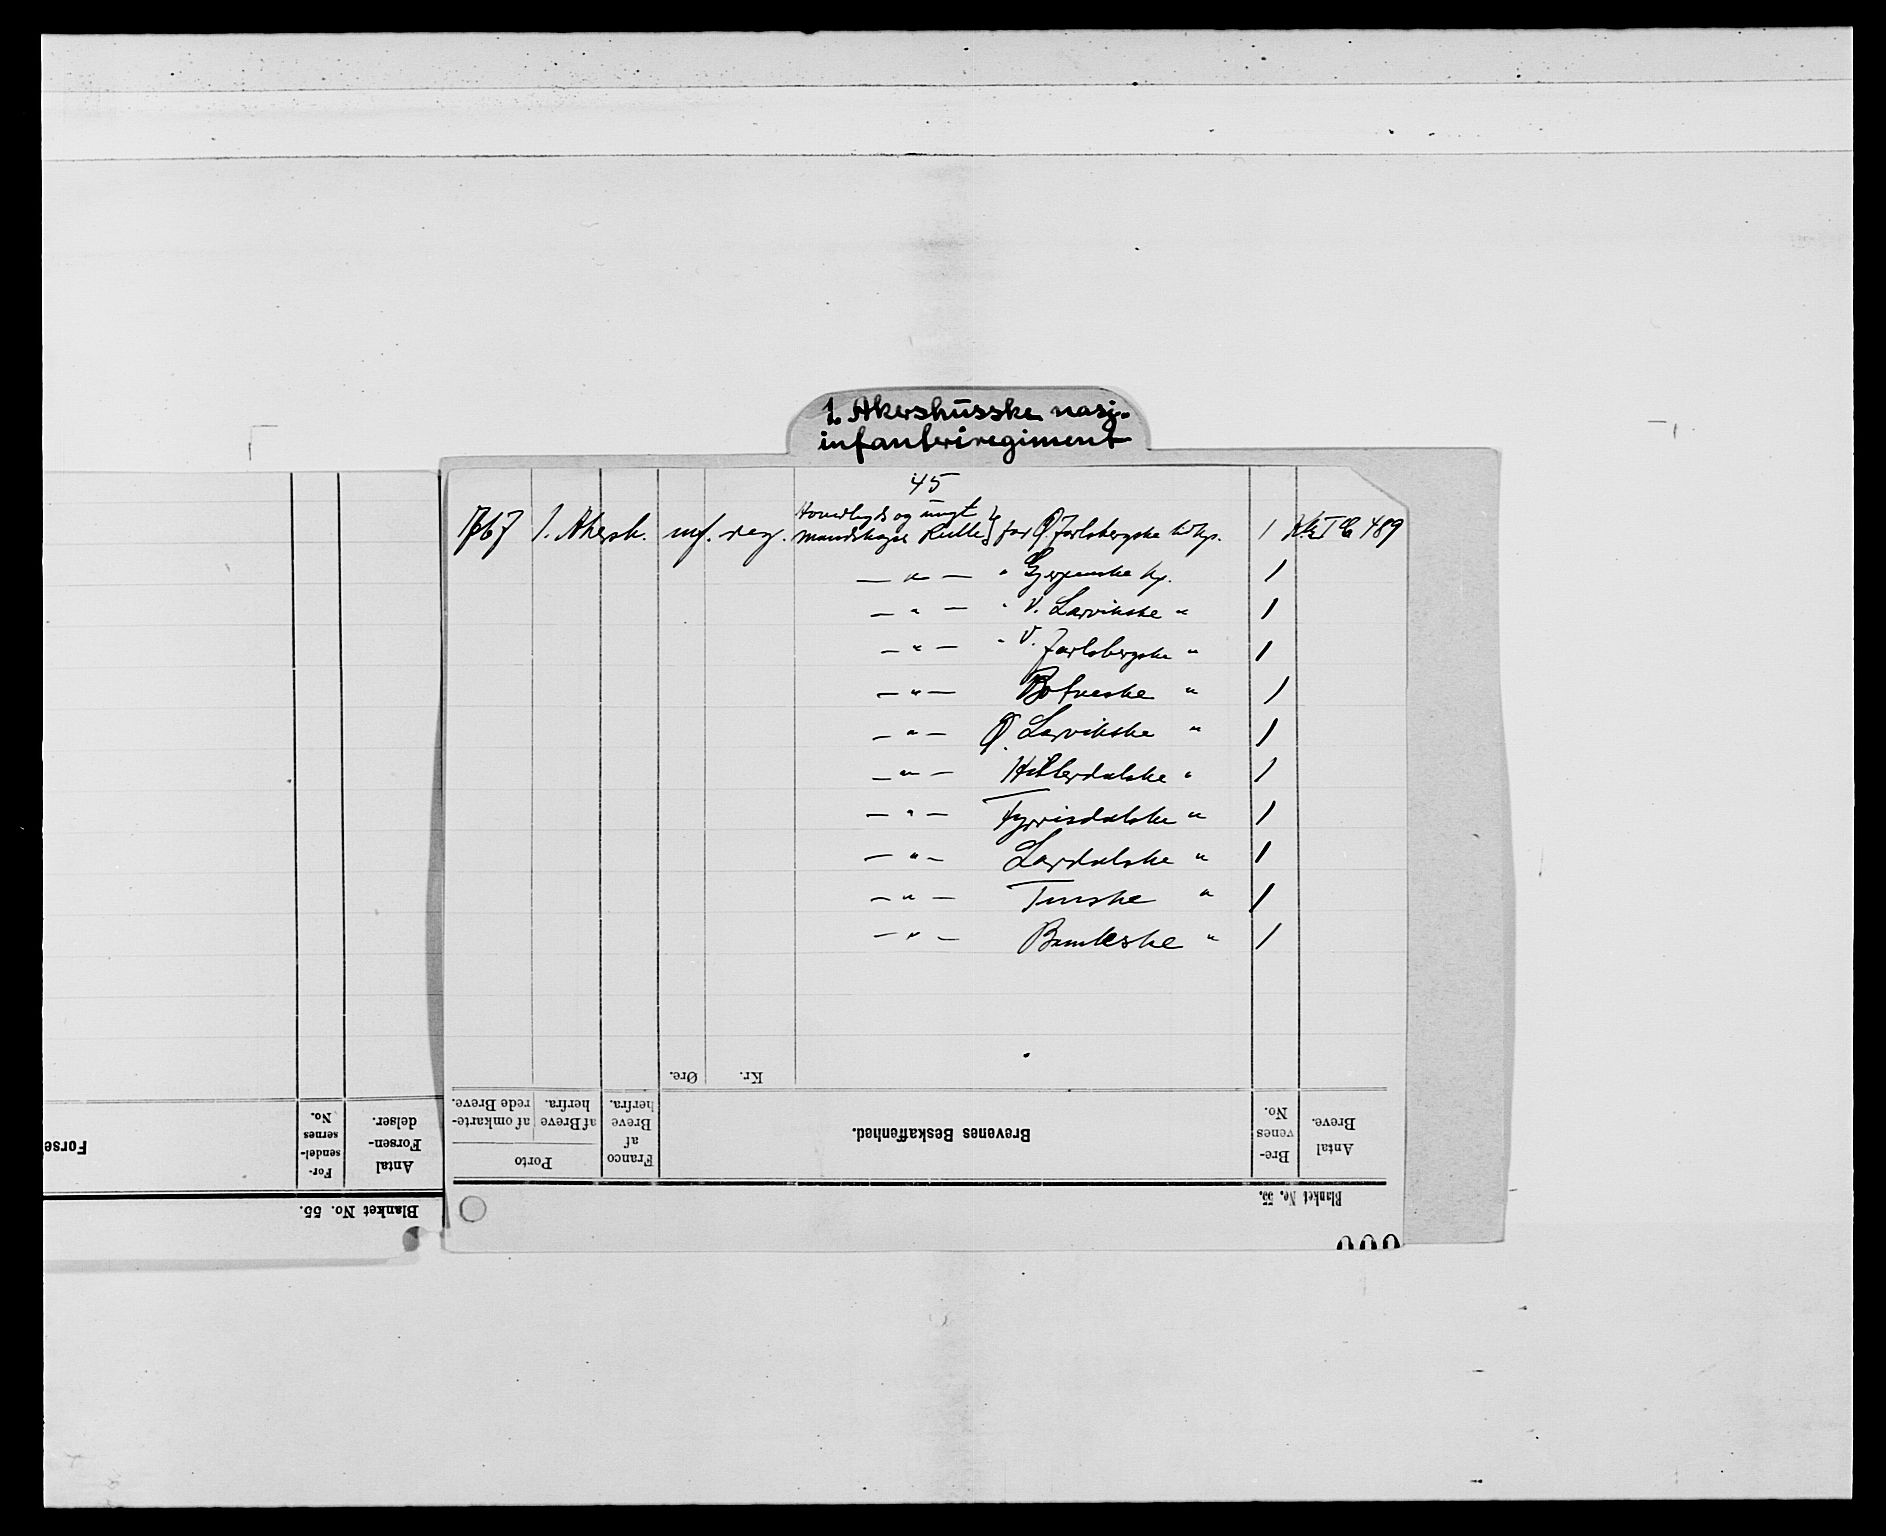 1. Akershusske nasj.
infanteriregiment
45
1767 1. Akersh. inf. reg. Hoverlegds og ungt
mandskaps Rulle for Ø. Jarlsbergske kp. 1
— " — " Gjerpenske kp. 1
— " — " V. Larvikske " 1
— " — " V. Jarlsbergske " 1
— " — Botneske " 1
— " — Ø. Larvikske " 1
— " — Hitterdalske " 1
— " — Tyrrisdalske " 1
— " — Lardalske " 1
— " — Tinske " 1
— " — Bambleske " 1
Øre. Kr.
Antal Breve.
Brevenes No.
Brevenes Beskaffenhed.
Franco af Breve herfra.
Porto
af Breve herfra.
af omkarterede Breve.
Blanket No. 55.
Antal Forsendelser.
Forsendelsernes No.
Forse
Blanket No. 55.